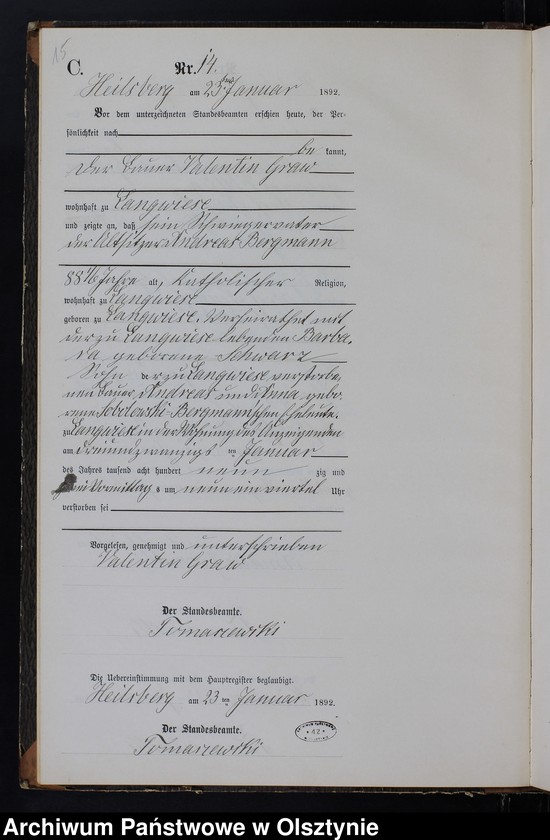 15
C. Nr. 14.
Heilsberg am 23ten Januar 1892.
Vor dem unterzeichneten Standesbeamten erschien heute, der Per-
sönlichkeit nach
be kannt,
Der Bauer Valentin Graw
wohnhaft zu Langwiese
und zeigte an, daß sein Schwiegervater
der Altsitzer Andreas Bergmann
88 1/6 Jahre alt, Katholischer Religion,
wohnhaft zu Langwiese
geboren zu Langwiese, Verheirathet mit
der zu Langwiese lebenden Barba-
ra geborene Schwarz
Sohn der zu Langwiese verstorbe-
nen Bauer, Andreas und Anna gebo-
rene Bergmann'schen Eheleute.
zu Langwiese in der Wohnung des Anzeigenden
am dreiundzwanzigs ten Januar
des Jahres tausend acht hundert neun zig und
zwei Vormittag s um neun ein viertel Uhr
verstorben sei
Vorgelesen, genehmigt und unterschrieben
Valentin Graw
Der Standesbeamte.
Tomaszewski
Die Uebereinstimmung mit dem Hauptregister beglaubigt.
Heilsberg am 23 ten Januar 1892.
Der Standesbeamte.
Tomaszewski
* 42 *
Archiwum Państwowe w Olsztynie